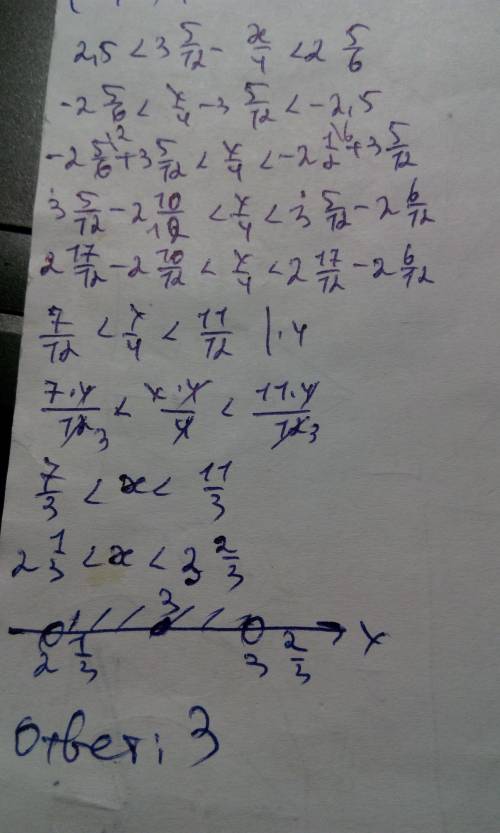 2,5 < 3 5/12 - x/4 < 2 5/6
-2 5/6 < x/4 - 3 5/12 < -2,5
-2 5/6 \2 + 3 5/12 < x/4 < -2 1/2 \6 + 3 5/12
3 5/12 - 2 10/12 < x/4 < 3 5/12 - 2 6/12
2 17/12 - 2 10/12 < x/4 < 2 17/12 - 2 6/12
7/12 < x/4 < 11/12 | · 4
7·4/12 3 < x·4/4 < 11·4/12 3
7/3 < x < 11/3
2 1/3 < x < 3 2/3
3
2 1/3 3 2/3 x
Ответ: 3